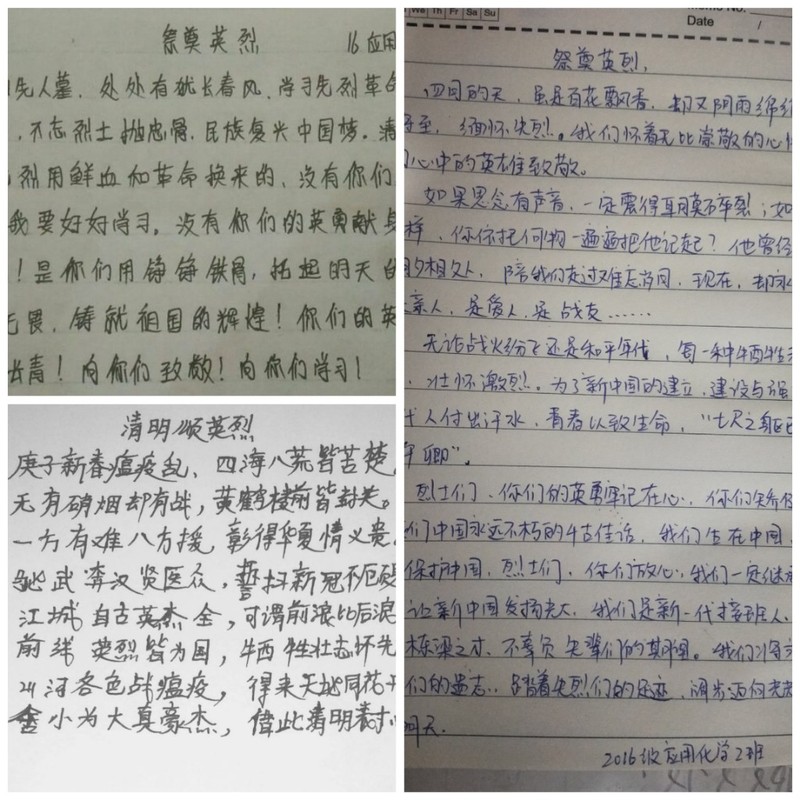 祭奠英烈 16应用
先人墓,处处有犹长春风,学习先烈革
,不忘烈士抛忠骨,民族复兴中国梦。清
烈用鲜血和革命换来的,没有你们
我要好好学习,没有你们的英勇献身
!是你们用铮铮铁骨,拓起明天的
无畏,铸就祖国的辉煌!你们的英
长青!向你们致敬!向你们学习!
清明颂英烈
庚子新春瘟疫乱,四海八荒皆苦楚
无有硝烟却有战,黄鹤楼前皆封关。
一方有难八方援,彰得华夏情义贵
驰武奔汉贤医众,誓扫新冠不
江城自古英杰全,可谓前浪比后浪
前线英烈皆为国,牺牲壮志怀先
山河各色战瘟疫,得来天地同花
舍小为大真豪杰,借此清明表
We Th Fr Sa Su
Memo No.
Date /
祭奠英烈,
四月的天,虽是百花飘香,却又阴雨绵
至,缅怀先烈。我们怀着无比崇敬的心
心中的英雄致敬。
如果思念有声音,一定震得耳膜碎裂;如
样,你依托何物一遍遍把他记起?他曾经
夕相处,陪我们走过难忘岁月,现在,却永
亲人,是爱人,是战友……
无论战火纷飞还是和平年代,每一种牺牲
,壮怀激烈。为了新中国的建立,建设与强
代人付出汗水,青春以致生命,“七尺之躯已
卿”。
烈士们,你们的英勇牢记在心,你们
们中国永远不朽的千古佳话,我们生在中国,
保护中国,烈士们,你们放心,我们一定继承
让新中国发扬光大,我们是新一代接班人,
栋梁之才,不辜负先辈们的期望。我们将
们的遗志,踏着先烈们的足迹,阔步迈向
明天.
2016级应用化学2班